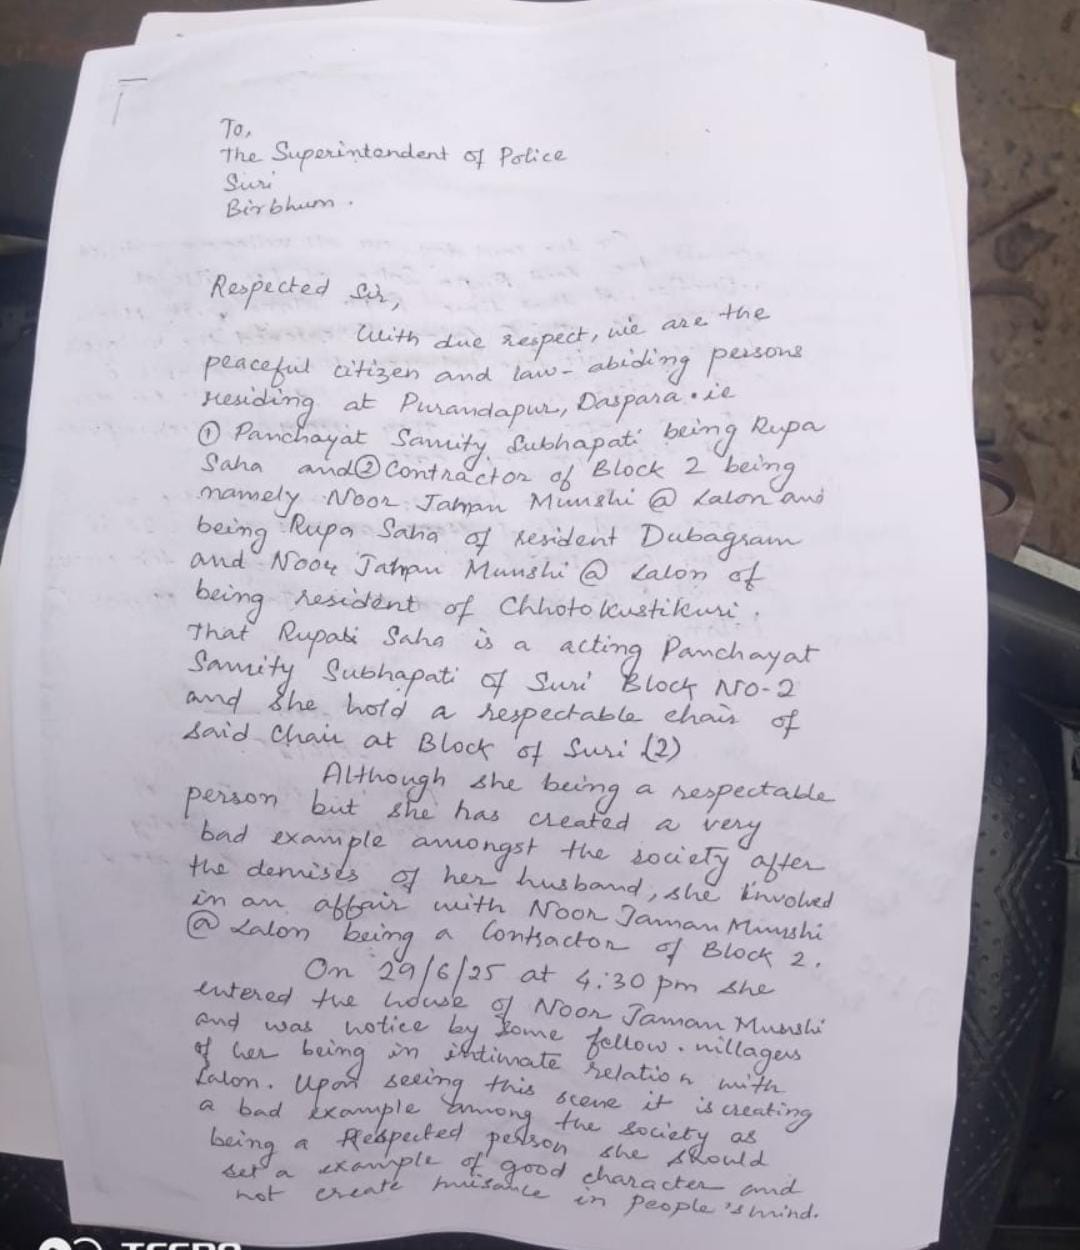 To,
The Superintendent of Police
Suri
Birbhum.
Respected Sir,
With due respect, we are the
peaceful citizen and law-abiding persons
residing at Purandapur, Daspara. ie
① Panchayat Samity Subhapati being Rupa
Saha and ② Contractor of Block 2 being
namely Noor Jaman Munshi @ Lalon and
being Rupa Saha of resident Dubagram
and Noor Jaman Munshi @ Lalon of
being resident of Chhoto Kustikuri.
That Rupali Saha is a acting Panchayat
Samity Subhapati of Suri Block NO-2
and she hold a respectable chair of
said Chair at Block of Suri (2)
Although she being a respectable
person but she has created a very
bad example amongst the society after
the demises of her husband, she involved
in an affair with Noor Jaman Munshi
@ Lalon being a Contractor of Block 2.
On 29/6/25 at 4:30 pm she
entered the house of Noor Jaman Munshi
and was notice by some fellow. villagers
of her being in intimate relation with
Lalon. Upon seeing this scene it is creating
a bad example among the society as
being a Respected person she should
set a example of good character and
not create nuisance in people's mind.